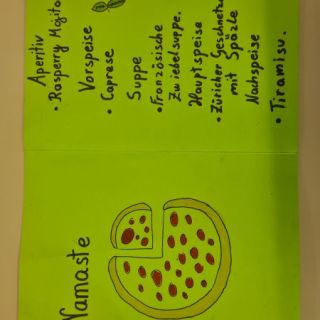 Aperitiv
• Rasperry Mójito
Vorspeise
• Caprese
Suppe
• Französische
Zwiebelsuppe.
Hauptspeise
• Züricher Geschnetzel
mit Spätzle
Nachspeise
• Tiramisu.
Namaste